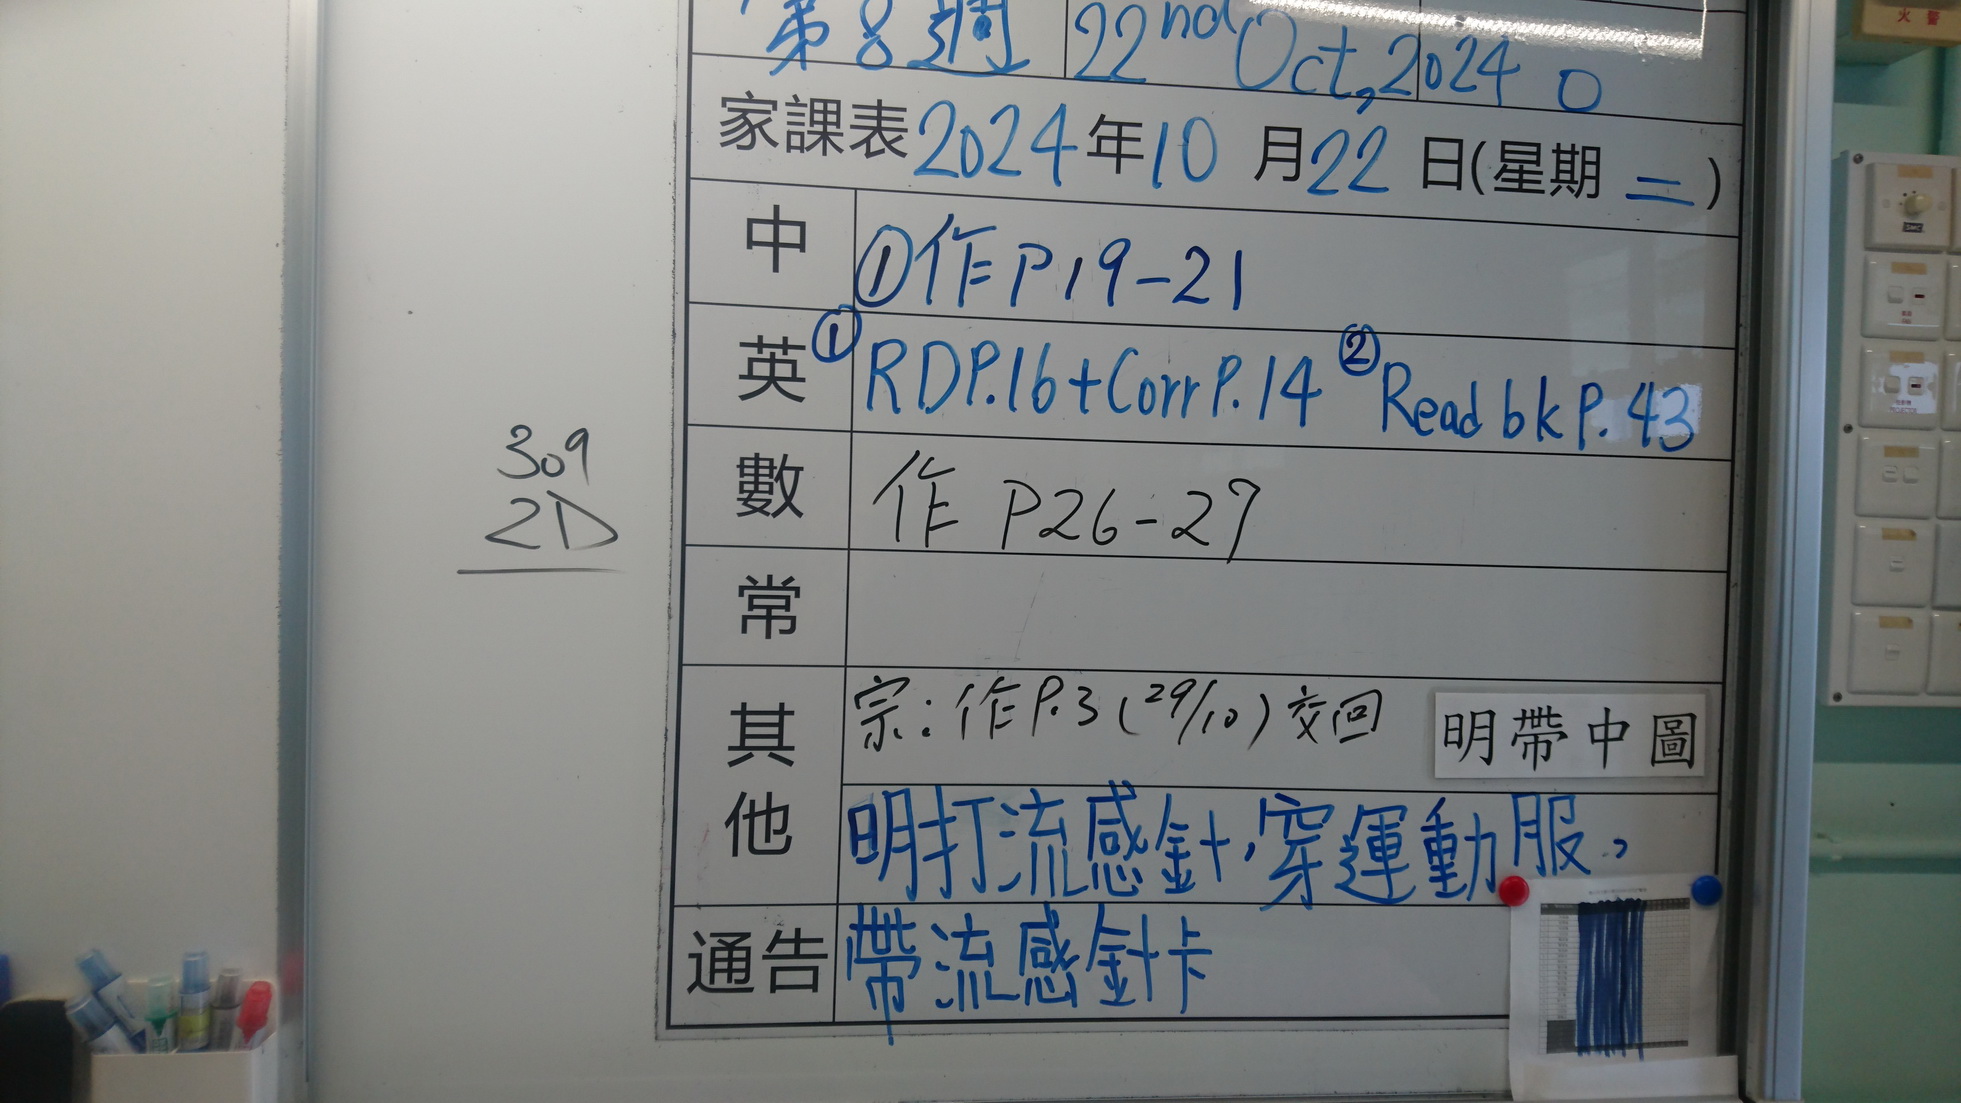 第8週 22nd Oct, 2024
家課表2024年10月22日(星期二)
中 ①作P19-21
英 ①RDP.16+Corr P.14 ②Read bk P.43
數 作 P26-27
常
其他 宗:作P.3(29/10)交回 明帶中圖
明打流感針,穿運動服,
通告 帶流感針卡
309
2D
火警